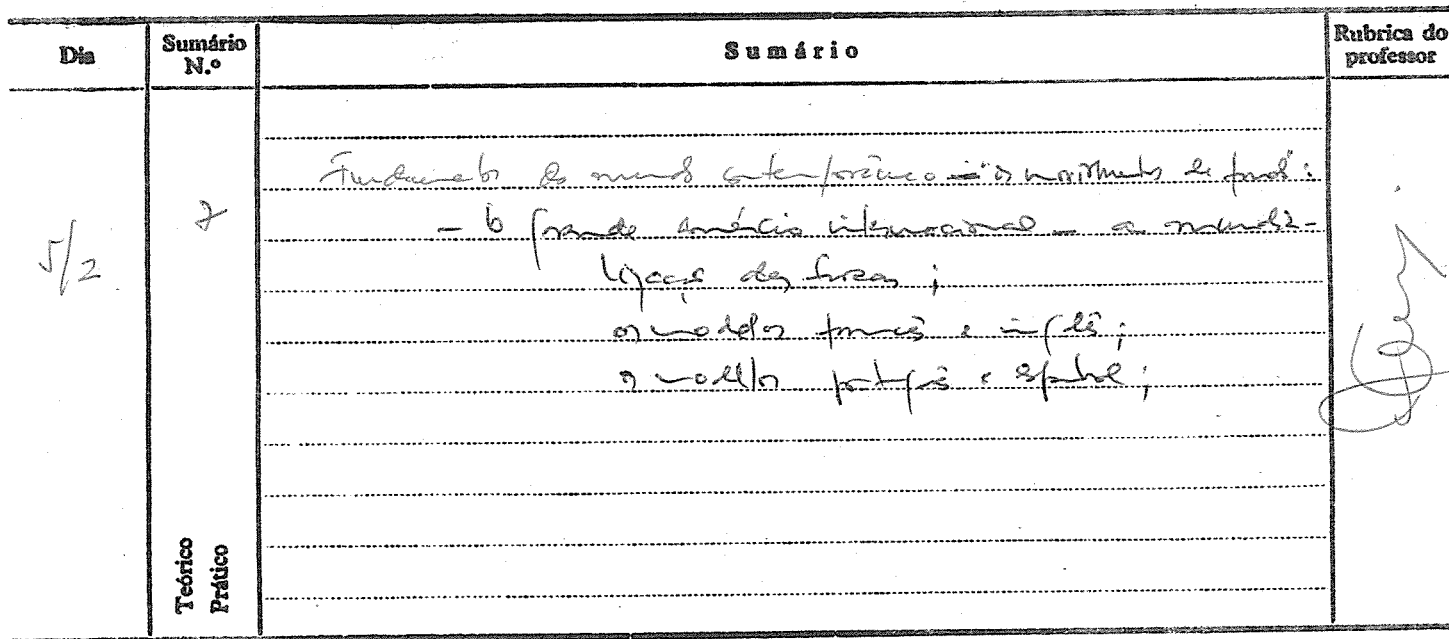 Dia
Sumário N.º
Sumário
Rubrica do professor
5/2
7
Fundamentos do mundo contemporâneo - "os movimentos de fundo":
- O grande comércio internacional - a mundia-
lização das trocas;
os modelos francês e inglês;
os modelos português e espanhol;
Teórico
Prático